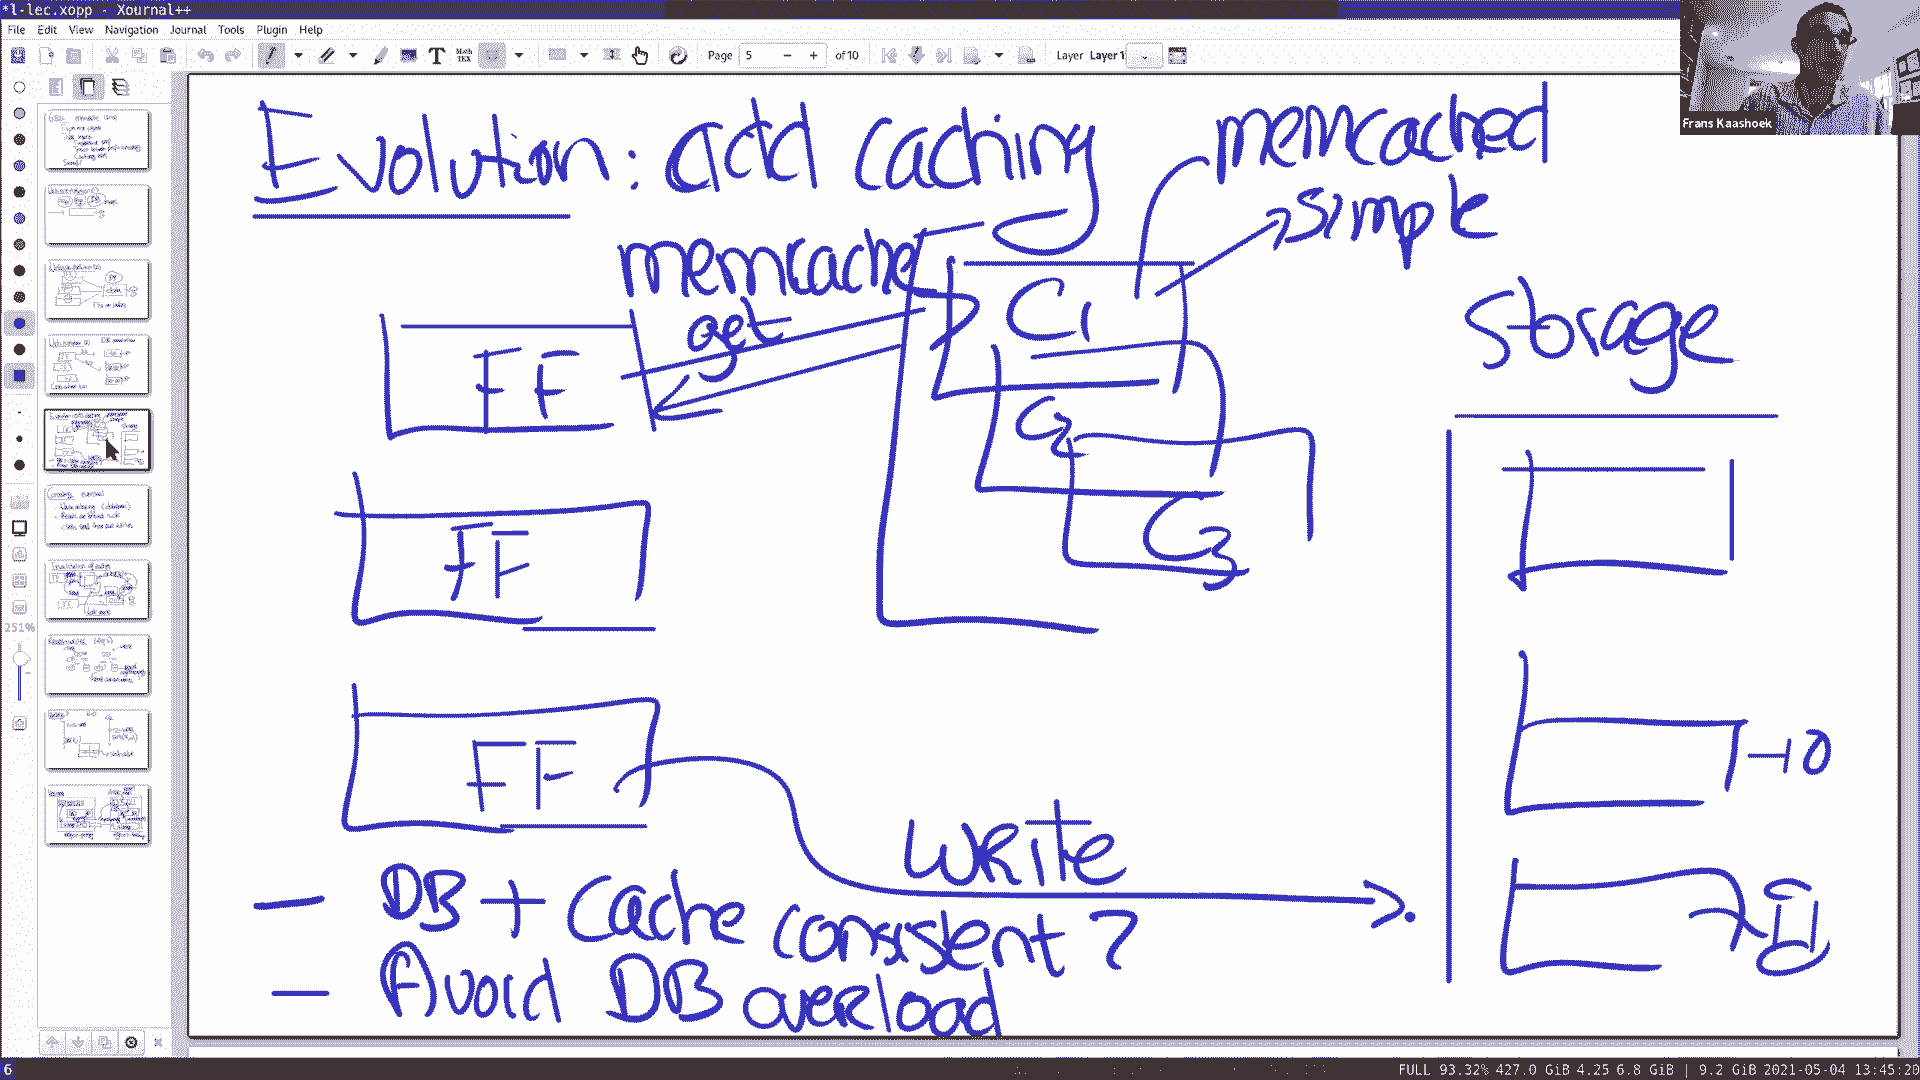 *l-lec.xopp - Xournal++
File Edit View Navigation Journal Tools Plugin Help
T Math TEX Page 5 - + of 10 Layer Layer 1
Frans Kaashoek
251%
Evolution: add caching
memcached
simple
memcache
get
C1
C2
C3
Storage
FE
FE
FE
write
- DB + cache consistent?
- Avoid DB overload
6
FULL 93.32% 427.0 GiB 4.25 6.8 GiB | 9.2 GiB 2021-05-04 13:45:20